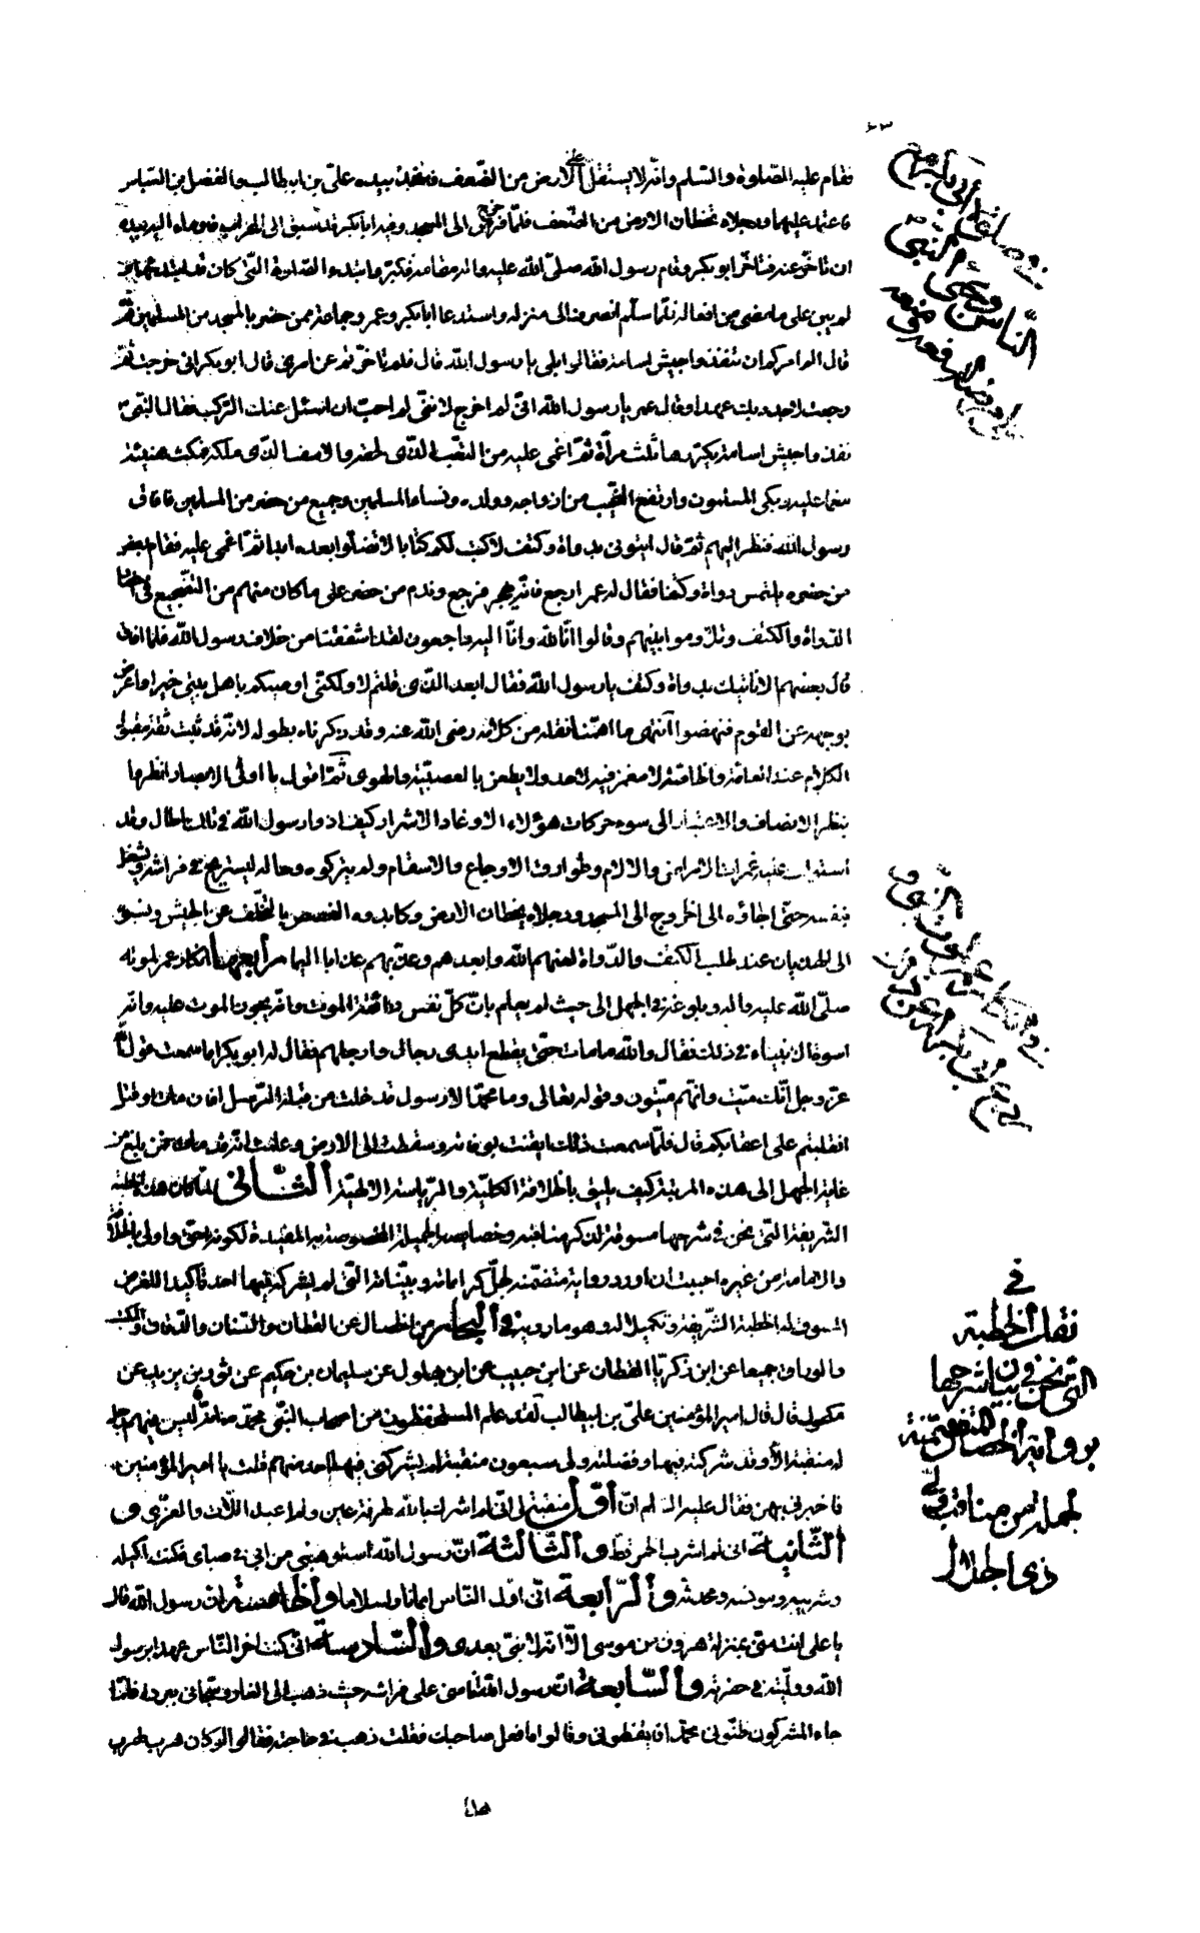 فقام عليه الصلوة والسلم وانه لا يستقل على الارض من الضعف فاخذ بيده علىّ بن ابيطالب والفضل بن العباس
فاعتمد عليهما ورجلاه تخطان الارض من الضعف فلمّا خرج الى المسجد وجد ابا بكر قد سبق الى المحراب فاومأ اليه بيده
ان تاخر عنه فتاخر ابو بكر وقام رسول الله صلّى الله عليه واله مقامه فكبّر وابتدء الصلوة التى كان قد ابتدء بها
لم يبن على ما مضى من افعاله فلمّا سلّم انصرف الى منزله واستدعا ابا بكر وعمر وجماعة ممن حضر بالمسجد من المسلمين ثمّ
قال الم امركم ان تنفذوا جيش اسامة فقالوا بلى يا رسول الله قال فلم تاخرتم عن امرى قال ابو بكر انى خرجت ثمّ
رجعت لاجدد بك عهدا وقال عمر يا رسول الله انّى لم اخرج لانّنى لم احبّ ان اسئل عنك الركب فقال النبىّ
نفذوا جيش اسامة يكررها ثلث مرّة ثمّ اغمى عليه من التعب الذى لحقه والاسف الذى ملكه فمكث هنيئة
مغما عليه وبكى المسلمون وارتفع النحيب من ازواجه وولده ونساء المسلمين وجميع من حضر من المسلمين فافاق
رسول الله فنظر اليهم ثمّ قال ايتونى بدواة وكتف لاكتب لكم كتابا لا تضلّوا بعده ابدا ثمّ اغمى عليه فقام بعض
من حضره يلتمس دواة وكتفا فقال له عمر ارجع فانّه يهجر فرجع وندم من حضر على ما كان منهم من التضجيع فى احضار
الدواة والكتف وتلاوموا بينهم وقالوا انّا لله وانّا اليه راجعون لقد اشفقنا من خلاف رسول الله فلما افاق
قال بعضهم الا ناتيك بدواة وكتف يا رسول الله فقال ابعد الذى قلتم لا ولكنّى اوصيكم باهل بيتى خيرا واعرض
بوجهه عن القوم فنهضوا انتهى ما اهمّنا نقله من كلامه رضى الله عنه وقد ذكرناه بطوله لانّه قد ثبت ثقة مقبول
الكلام عند العامّة والخاصّة لا مغمز فيه لاحد ولا يطعن بالعصبيّة والهوى ثمّ اقول يا اولى الابصار انظروا
بنظر الانصاف والاعتبار الى سوء حركات هؤلاء الاوغاد الاشرار كيف اذوا رسول الله فى تلك الحال وقد
استولت عليه غمرات الامراض والالام وطوارق الاوجاع والاسقام ولم يتركوه وحاله ليستريح فى فراشه ويشتغل
بنفسه حتّى الجاؤه الى الخروج الى المسجد ورجلاه يخطان الارض وكابدوه الغصص بالتخلّف عن الجيش ونسبوه
الى الهذيان عند طلب الكتف والدّواة لعنهم الله وابعدهم وعذّبهم عذابا اليما رابعها انكار عمر لموته
صلّى الله عليه واله وبلوغه فى الجهل الى حيث لم يعلم بانّ كلّ نفس ذائقة الموت وانه يجوز الموت عليه وانه
اسوة الانبياء فى ذلك فقال والله ما مات حتّى يقطع ايدى رجال وارجلهم فقال له ابو بكر اما سمعت قول الله
عزّ وجل انّك ميّت وانّهم ميّتون وقوله تعالى وما محمّد الا رسول قد خلت من قبله الرّسل افان مات او قتل
انقلبتم على اعقابكم قال فلمّا سمعت ذلك ايقنت بوفاته وسقطت الى الارض وعلمت انّه قد مات فمن بلغ من
غاية الجهل الى هذه المرتبة كيف يليق بالخلافة الكليّة والرّياسة الالهيّة الثّانى لمّا كان هذه الخطبة
الشريفة التى نحن فى شرحها مسوقة لذكر مناقبه وخصايصه الجميلة المخصوصة به المفيدة لكونه احق واولى بالخلافة
والامامة من غيره احببت ان اورد رواية متضمّنة لجلّ كراماته وبيّناته التى لم يشركه فيها احد تاكيدا للغرض
المسوق له الخطبة الشّريفة وتكميلا له وهو ما رويه فى البحار من الخصال عن القطان والسنان والدقاق والمكتب
والوراق جميعا عن ابن زكريّا القطان عن ابن حبيب عن ابن بهلول عن سليمان بن حكيم عن ثور بن يزيد عن
مكحول قال قال امير المؤمنين علىّ بن ابيطالب لقد علم المستحفظون من اصحاب النبىّ محمّد صانه ليس فيهم رجل
له منقبة الّا وقد شركته فيها وفضلته ولى سبعون منقبة لم يشركنى فيها احد منهم قلت يا امير المؤمنين
فاخبرنى بهن فقال عليه السلام انّ اوّل منقبة لى انّى لم اشرك بالله طرفة عين ولم اعبد اللّات والعزّى و
الثّانية انى لم اشرب الخمر قط والثّالثة انّ رسول الله استوهبنى من ابى فى صباى فكنت اكيله
وشريبه ومونسه ومحدثه والرّابعة انّى اوّل الناس ايمانا واسلاما والخامسة ان رسول الله قال
يا على انت منّى بمنزلة هرون من موسى الّا انّه لا نبىّ بعدى والسّادسة انّى كنت اخر النّاس عهدا برسول
الله وولّيته فى حفرته والسّابعة انّ رسول الله انامنى على فراشه حيث ذهب الى الغار وسجّانى ببرده فلمّا
جاء المشركون ظنّونى محمّدا فايقظونى وقالوا ما فعل صاحبك فقلت ذهب فى حاجته فقالوا لو كان هرب لهرب
فى
نقل الخطبة
التى نحن فى بيان شرحها
برواية الخصال المتضمّنة
لجملة من مناقب ولىّ
ذى الجلال